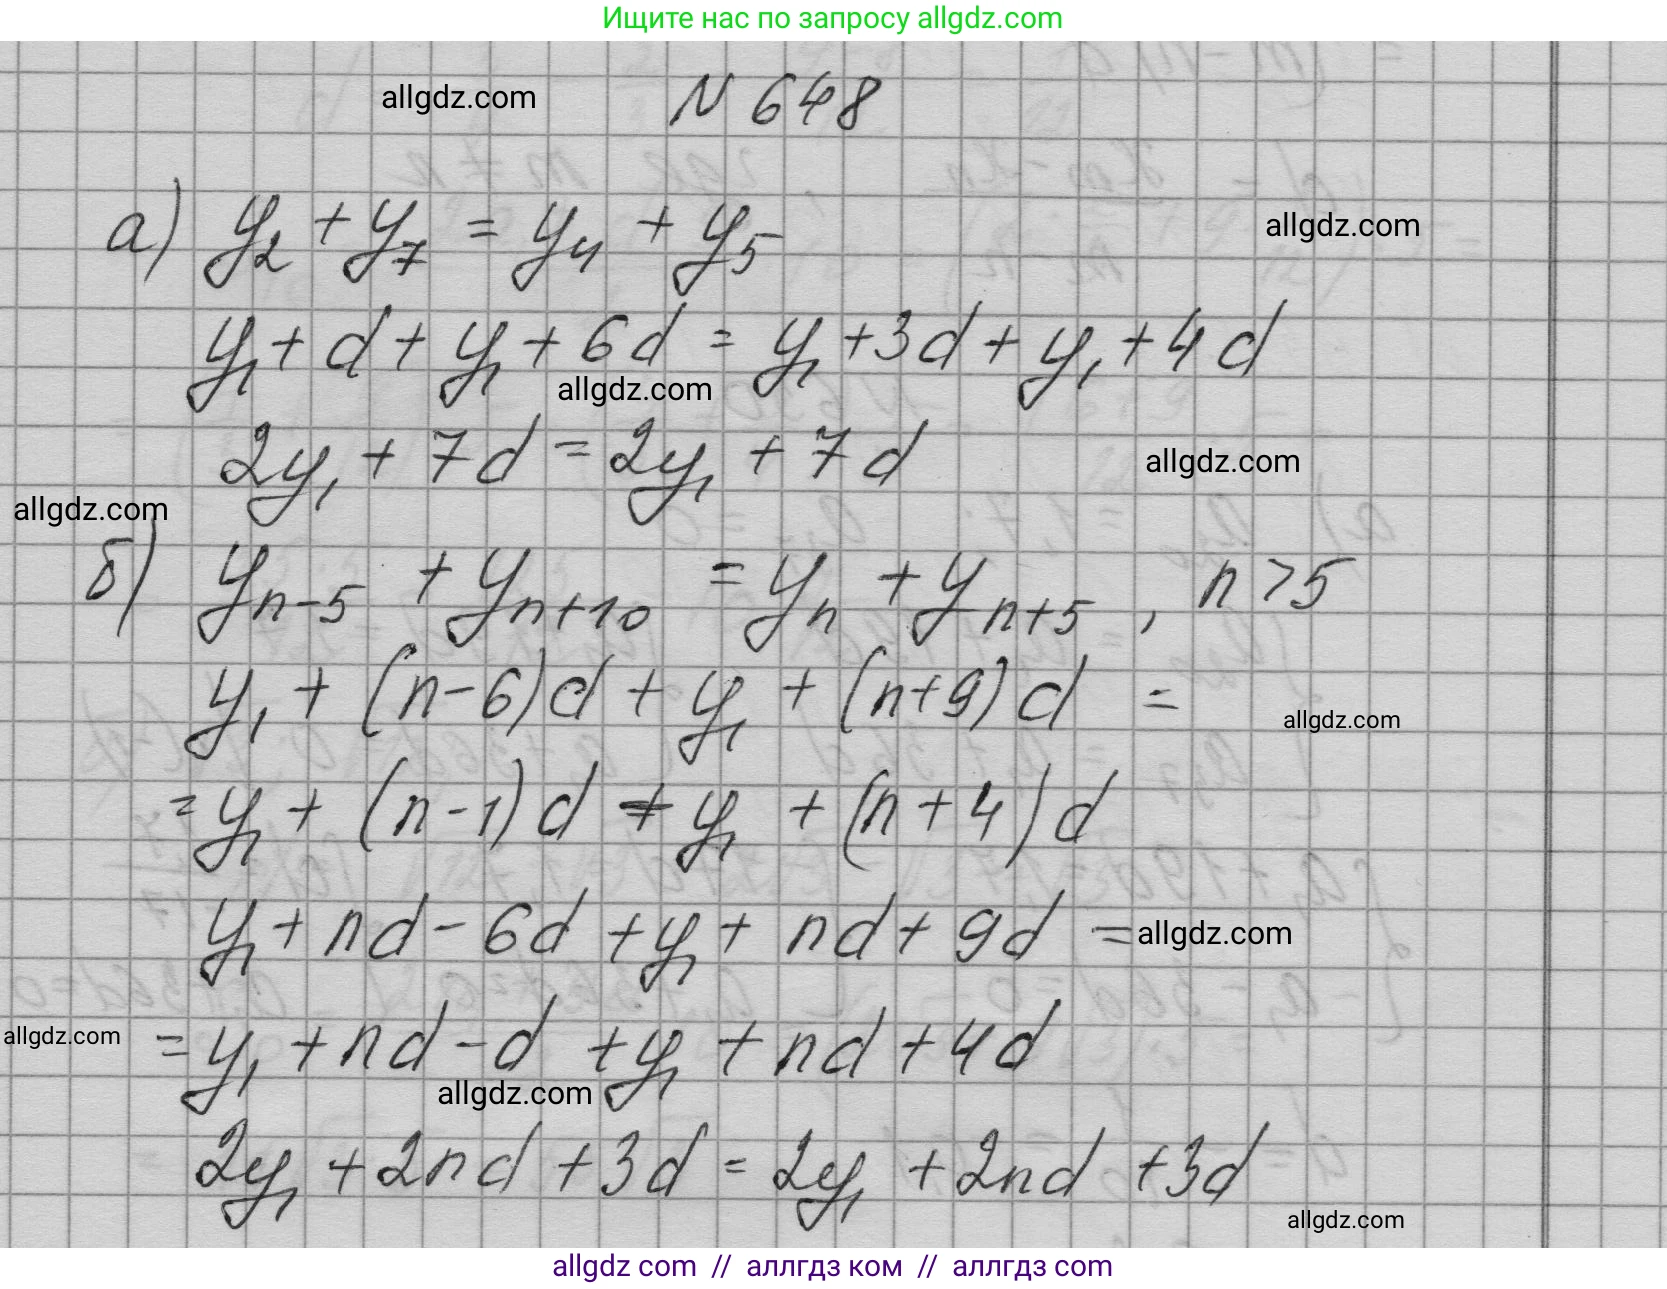 Ищите нас по запросу allgdz.com
allgdz.com
N 648
а) y₂ + y₇ = y₄ + y₅
allgdz.com
y₁ + d + y₁ + 6d = y₁ + 3d + y₁ + 4d
allgdz.com
2y₁ + 7d = 2y₁ + 7d
allgdz.com
allgdz.com
б) yₙ₋₅ + yₙ₊₁₀ = yₙ + yₙ₊₅ , n > 5
y₁ + (n-6)d + y₁ + (n+9)d =
allgdz.com
= y₁ + (n-1)d + y₁ + (n+4)d
y₁ + nd - 6d + y₁ + nd + 9d =
allgdz.com
allgdz.com
= y₁ + nd - d + y₁ + nd + 4d
allgdz.com
2y₁ + 2nd + 3d = 2y₁ + 2nd + 3d
allgdz.com
allgdz com // аллгдз ком // аллгдз com